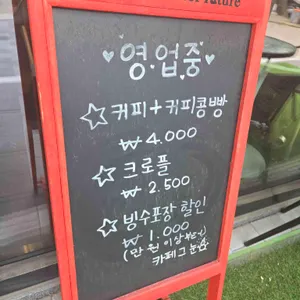 future
영업중
커피+커피콩빵
₩ 4.000
크로플
₩ 2.500
빙수포장 할인
₩ 1.000
(만원이상부터)
카페그눈숲